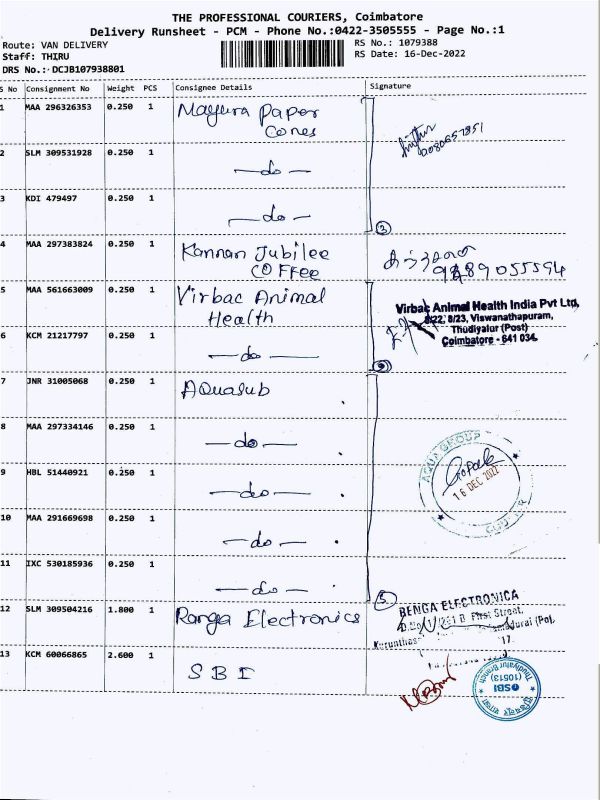 THE PROFESSIONAL COURIERS, Coimbatore
Delivery Runsheet - PCM - Phone No.:0422-3505555 - Page No.:1
Route: VAN DELIVERY
Staff: THIRU
DRS No.: DCJB107938801
RS No.: 1079388
RS Date: 16-Dec-2022
S No Consignment No Weight PCS Consignee Details Signature
1 MAA 296326353 0.250 1 Mayura Paper
Cones
2 SLM 309531928 0.250 1 —do—
3 KDI 479497 0.250 1 —do—
3
4 MAA 297383824 0.250 1 Kannan Jubilee
COFFee
5 MAA 561663009 0.250 1 Virbac Animal
Health
Virbac Animal Health India Pvt Ltd,
8/22, 8/23, Viswanathapuram,
Thudiyalur (Post)
Coimbatore - 641 034.
6 KCM 21217797 0.250 1 —do—
7 JNR 31005068 0.250 1 AQuasub
8 MAA 297334146 0.250 1 —do—
AQUA GROUP
16 DEC 2022
9 HBL 51440921 0.250 1 —do—
10 MAA 291669698 0.250 1 —do—
11 IXC 530185936 0.250 1 —do—
5
12 SLM 309504216 1.800 1 Ranga Electronics
BENGA ELECTRONICA
First Street,
13 KCM 60066865 2.600 1 SBI
SBI
(10513)
Thudiyalur Branch